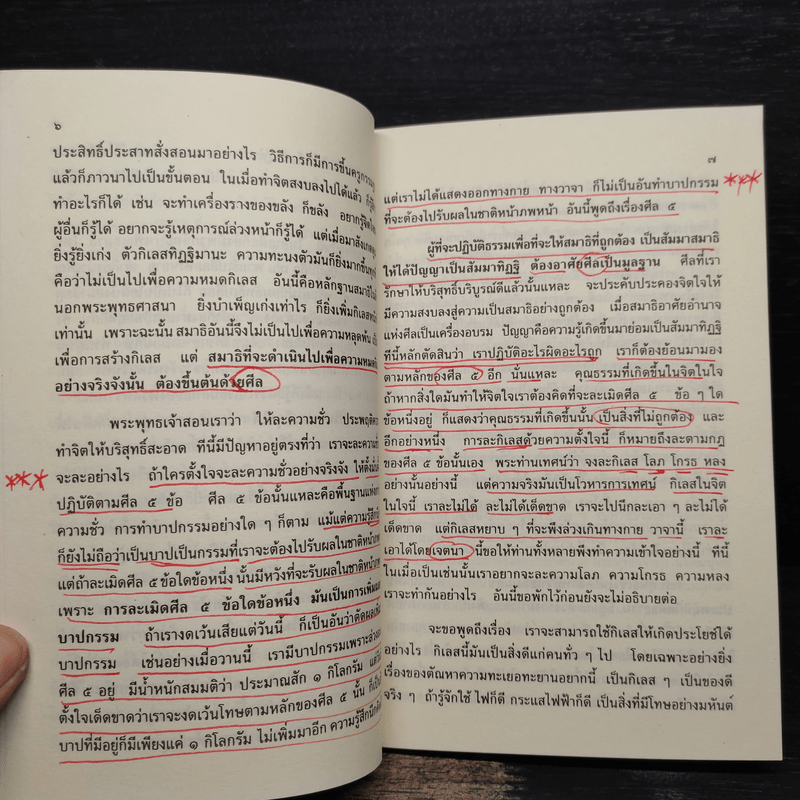 ๖
ประสิทธิ์ประสาทสั่งสอนมาอย่างไร วิธีการก็มีการขึ้นครูกรรม
แล้วก็ภาวนาไปเป็นขั้นตอน ในเมื่อทำจิตสงบลงไปได้แล้ว
ทำอะไรก็ได้ เช่น จะทำเครื่องรางของขลัง ก็ขลัง อยากรู้จิตใจ
ผู้อื่นก็รู้ได้ อยากจะรู้เหตุการณ์ล่วงหน้าก็รู้ได้ แต่เมื่อมาสังเกตดู
ยิ่งรู้ยิ่งเก่ง ตัวกิเลสทิฏฐิมานะ ความทะนงตัวมันก็ยิ่งมากขึ้นทุกที
คือว่าไม่เป็นไปเพื่อความหมดกิเลส อันนี้คือหลักฐานสมาธิใน
นอกพระพุทธศาสนา ยิ่งบำเพ็ญเก่งเท่าไร ก็ยิ่งเพิ่มกิเลสหนัก
เท่านั้น เพราะฉะนั้น สมาธิอันนี้จึงไม่เป็นไปเพื่อความหลุดพ้น
เพื่อการสร้างกิเลส แต่ สมาธิที่จะดำเนินไปเพื่อความหมดกิเลส
อย่างจริงจังนั้น ต้องขึ้นต้นด้วยศีล
พระพุทธเจ้าสอนเราว่า ให้ละความชั่ว ประพฤติความดี
ทำจิตให้บริสุทธิ์สะอาด ทีนี้มีปัญหาอยู่ตรงที่ว่า เราจะละความชั่ว
จะละอย่างไร ถ้าใครตั้งใจจะละความชั่วอย่างจริงจัง ให้ตั้งมั่น
ปฏิบัติตามศีล ๕ ข้อ ศีล ๕ ข้อนั้นแหละคือพื้นฐานแห่งการละ
ความชั่ว การทำบาปกรรมอย่างใด ๆ ก็ตาม แม้แต่ความรู้สึกนึก
ก็ยังไม่ถือว่าเป็นบาปเป็นกรรมที่เราจะต้องไปรับผลในชาติหน้าภพ
แต่ถ้าละเมิดศีล ๕ ข้อใดข้อหนึ่ง นั้นมีหวังที่จะรับผลในชาติหน้า
เพราะ การละเมิดศีล ๕ ข้อใดข้อหนึ่ง มันเป็นการเพิ่มผล
บาปกรรม ถ้าเรางดเว้นเสียแต่วันนี้ ก็เป็นอันว่าตัดผลเพิ่ม
บาปกรรม เช่นอย่างเมื่อวานนี้ เรามีบาปกรรมเพราะล่วง
ศีล ๕ อยู่ มีน้ำหนักสมมติว่า ประมาณสัก ๑ กิโลกรัม แต่
ตั้งใจเด็ดขาดว่าเราจะงดเว้นโทษตามหลักของศีล ๕ นั้น ก็เป็น
บาปที่มีอยู่ก็มีเพียงแค่ ๑ กิโลกรัม ไม่เพิ่มมาอีก ความรู้สึกนึกคิด
๗
แต่เราไม่ได้แสดงออกทางกาย ทางวาจา ก็ไม่เป็นอันทำบาปกรรม
ที่จะต้องไปรับผลในชาติหน้าภพหน้า อันนี้พูดถึงเรื่องศีล ๕
ผู้ที่จะปฏิบัติธรรมเพื่อที่จะให้สมาธิที่ถูกต้อง เป็นสัมมาสมาธิ
ให้ได้ปัญญาเป็นสัมมาทิฏฐิ ต้องอาศัยศีลเป็นมูลฐาน ศีลที่เรา
รักษาให้บริสุทธิ์บริบูรณ์ดีแล้วนั้นแหละ จะประคับประคองจิตใจให้
มีความสงบลงสู่ความเป็นสมาธิอย่างถูกต้อง เมื่อสมาธิอาศัยอำนาจ
แห่งศีลเป็นเครื่องอบรม ปัญญาคือความรู้เกิดขึ้นมาย่อมเป็นสัมมาทิฏฐิ
ทีนี้หลักตัดสินว่า เราปฏิบัติอะไรผิดอะไรถูก เราก็ต้องย้อนมามอง
ตามหลักของศีล ๕ อีก นั้นแหละ คุณธรรมที่เกิดขึ้นในจิตในใจ
ถ้าหากสิ่งใดมันทำให้จิตใจเราต้องคิดที่จะละเมิดศีล ๕ ข้อ ๆ ใด
ข้อหนึ่งอยู่ ก็แสดงว่าคุณธรรมที่เกิดขึ้นนั้น เป็นสิ่งที่ไม่ถูกต้อง และ
อีกอย่างหนึ่ง การละกิเลสด้วยความตั้งใจนี้ ก็หมายถึงละตามกฎ
ของศีล ๕ ข้อนั้นเอง พระท่านเทศน์ว่า จงละกิเลส โลภ โกรธ หลง
อย่างนั้นอย่างนี้ แต่ความจริงมันเป็นโวหารการเทศน์ กิเลสในจิต
ในใจนี้ เราละไม่ได้ ละไม่ได้เด็ดขาด เราจะไปนึกละเอา ๆ ละไม่ได้
เด็ดขาด แต่กิเลสหยาบ ๆ ที่จะพึงล่วงเกินทางกาย วาจานี้ เราละ
เอาได้โดยเจตนา นี้ขอให้ท่านทั้งหลายพึงทำความเข้าใจอย่างนี้ ทีนี้
ในเมื่อเป็นเช่นนั้นเราอยากจะละความโลภ ความโกรธ ความหลง
เราจะทำกันอย่างไร อันนี้ขอพักไว้ก่อนยังจะไม่อธิบายต่อ
จะขอพูดถึงเรื่อง เราจะสามารถใช้กิเลสให้เกิดประโยชน์ได้
อย่างไร กิเลสนี้มันเป็นสิ่งดีแก่คนทั่ว ๆ ไป โดยเฉพาะอย่างยิ่ง
เรื่องของตัณหาความทะเยอทะยานอยากนี้ เป็นกิเลส ๆ เป็นของดี
จริง ๆ ถ้ารู้จักใช้ ไฟก็ดี กระแสไฟฟ้าก็ดี เป็นสิ่งที่มีโทษอย่างมหันต์